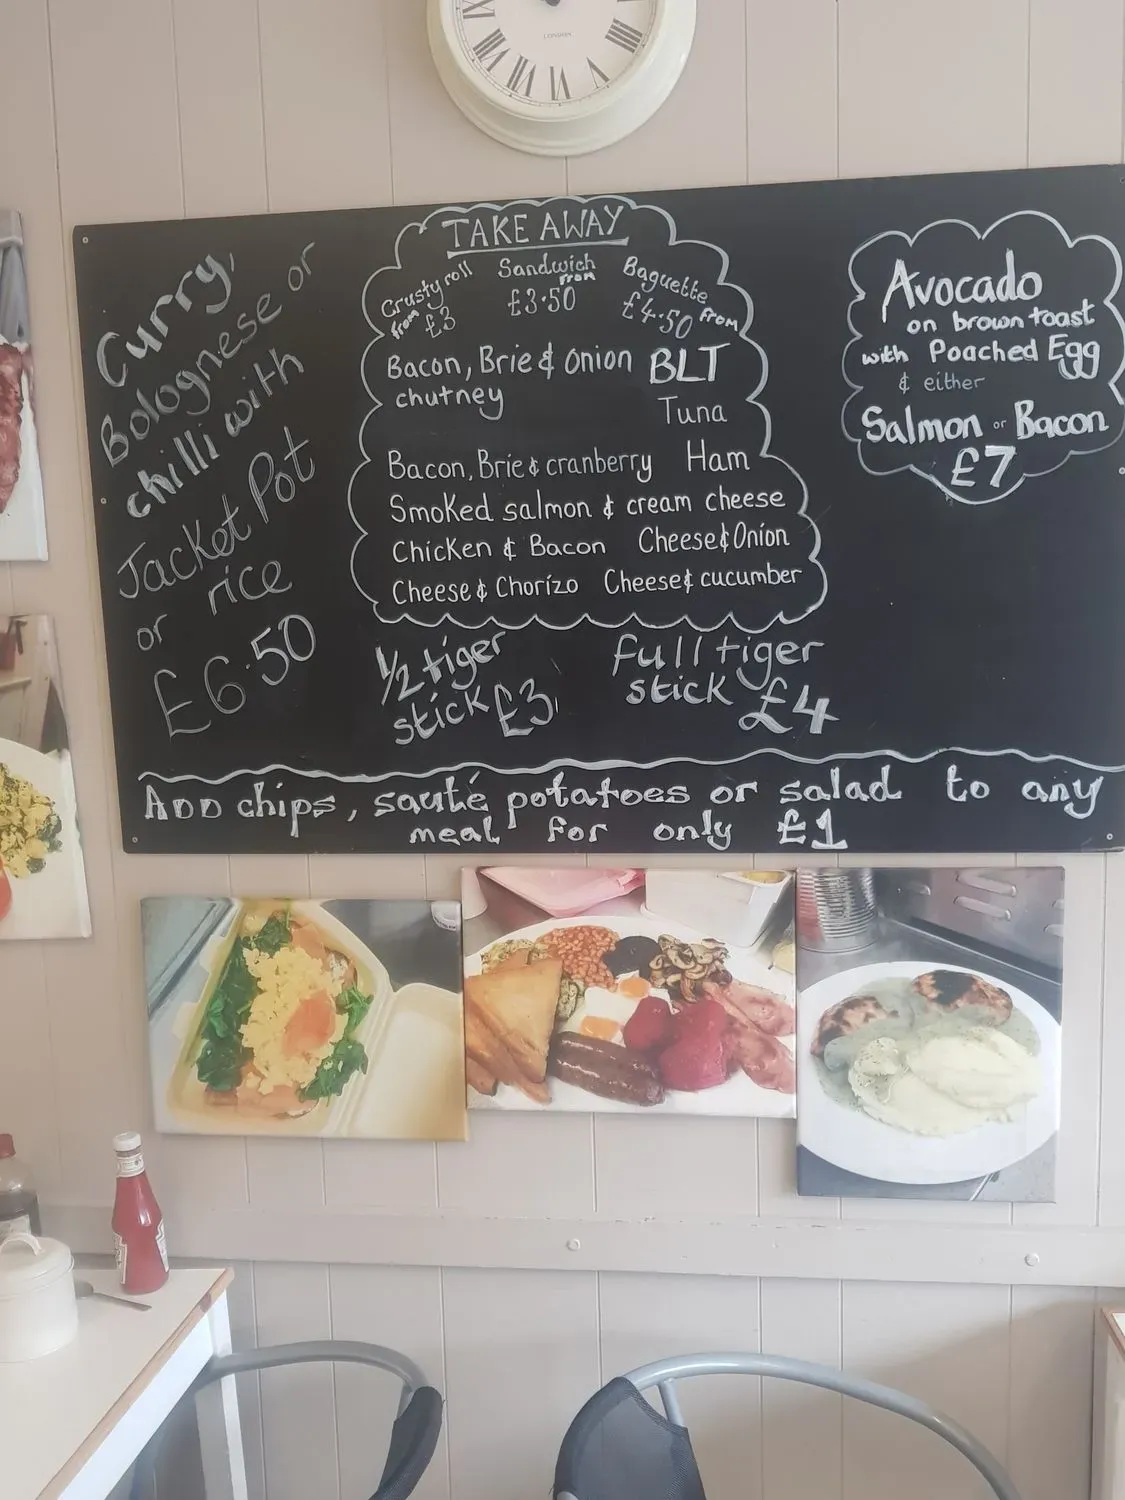 LONDON
Curry,
Bolognese or
chilli with
Jacket Pot
or rice
£6.50
TAKE AWAY
Crusty roll
from £3
Sandwich
from
£3.50
Baguette
£4.50 from
Bacon, Brie & onion BLT
chutney Tuna
Bacon, Brie & cranberry Ham
Smoked salmon & cream cheese
Chicken & Bacon Cheese & Onion
Cheese & Chorizo Cheese & cucumber
1/2 tiger
stick £3
full tiger
stick £4
Avocado
on brown toast
with Poached Egg
& either
Salmon or Bacon
£7
Add chips, sauté potatoes or salad to any
meal for only £1